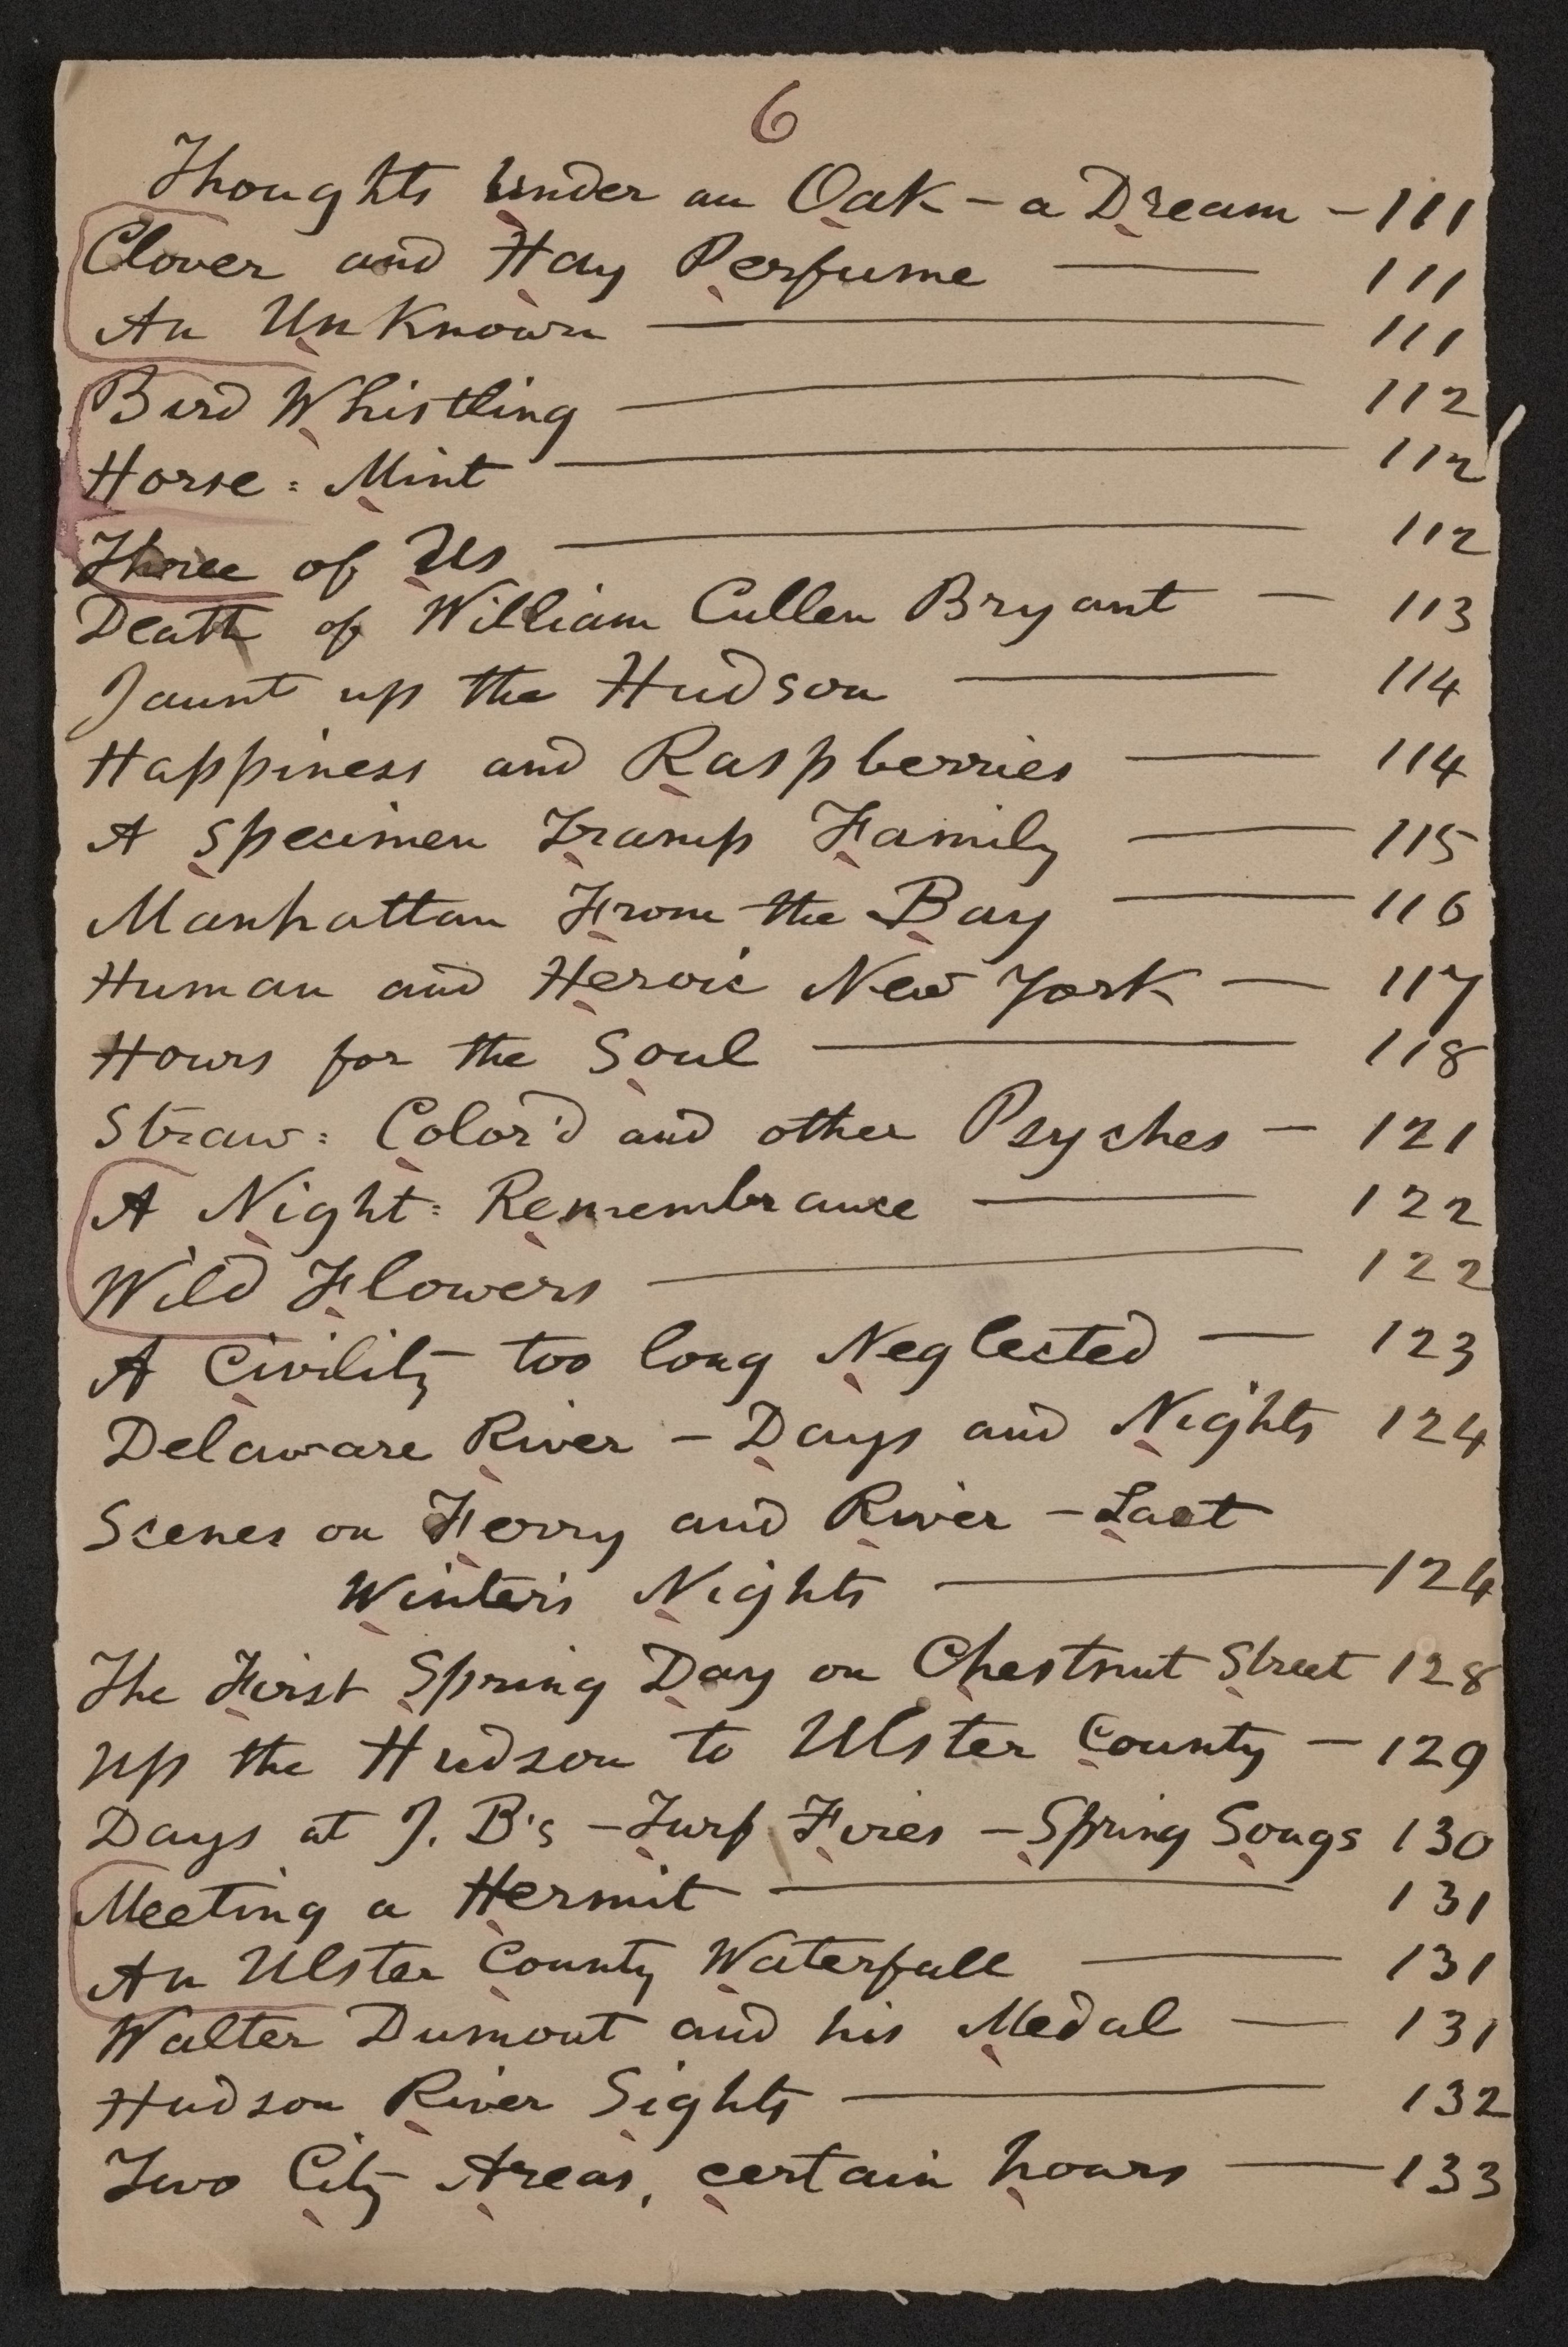 6
Thoughts Under an Oak – a Dream – 111
Clover and Hay Perfume — 111
An UnKnown — 111
Bird Whistling — 112
Horse = Mint — 112
Three of Us — 112
Death of William Cullen Bryant — 113
Jaunt up the Hudson — 114
Happiness and Raspberries — 114
A Specimen Tramp Family — 115
Manhattan From the Bay — 116
Human and Heroic New York — 117
Hours for the Soul — 118
Straw = Color'd and other Psyches — 121
A Night = Remembrance — 122
Wild Flowers — 122
A Civility too long Neglected — 123
Delaware River – Days and Nights 124
Scenes on Ferry and River – Last
Winter's Nights — 124
The First Spring Day on Chestnut Street 128
Up the Hudson to Ulster County — 129
Days at J. B's – Turf Fires – Spring Songs 130
Meeting a Hermit — 131
An Ulster County Waterfall — 131
Walter Dumont and his Medal — 131
Hudson River Sights — 132
Two City Areas, certain hours — 133